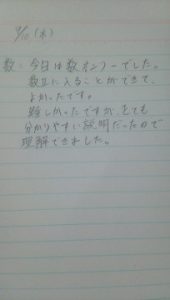 (木)
数:今日は数オンリーでした。
数Ⅲに入ることができて、
よかったです。
難しかったですが、とても
分かりやすい説明だったので
理解できました。